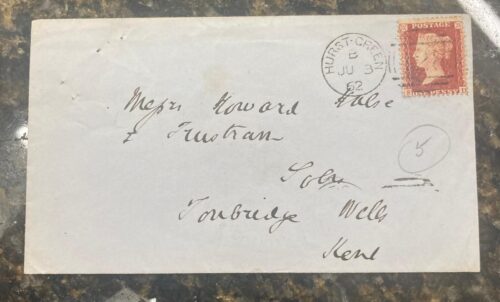 POSTAGE
HURST-GREEN
JU 3
62
ONE PENNY
Messrs Howard Halse
& Trustram
Solrs
Tonbridge Wells
Kent
5